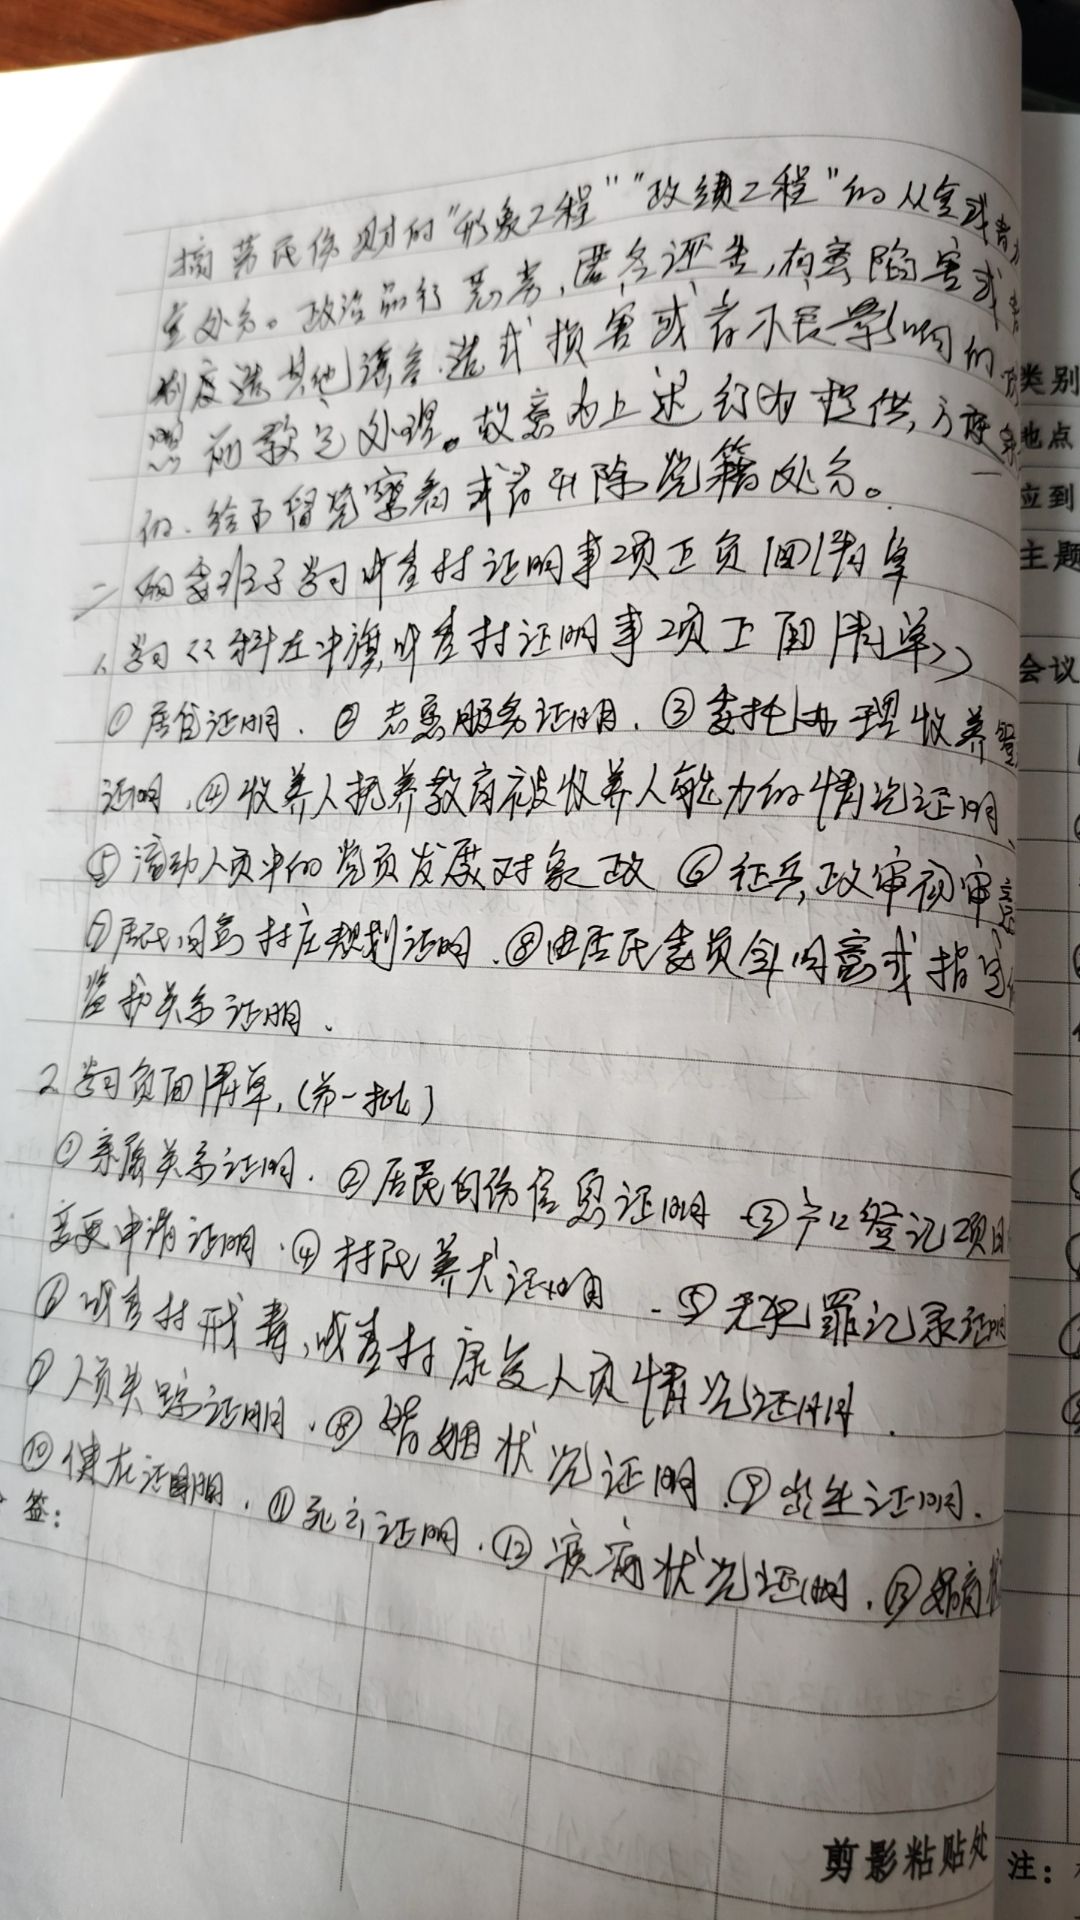 搞劳民伤财的"形象工程""政绩工程"的从重或者
重处分。政治品行恶劣,匿名诬告,有意陷害或
制度造其他谣言.造成损害或者不良影响的
照前款定处理。故意为上述行为提供,方便
的.给予留党察看或者开除党籍处分。
二 两委班子学习嘎查村证明事项正负面清单
1、学习《科左中旗嘎查村证明事项正面清单》
① 居住证明. ② 志愿服务证明. ③ 委托办理收养登
证明.④ 收养人抚养教育被收养人能力的情况证明
⑤ 流动人员中的党员发展对象政 ⑥ 征兵政审初审
⑦ 居民同意村庄规划证明.⑧由居民委员会同意或指定
监护关系证明.
2.学习负面清单,(第一批)
① 亲属关系证明.②居民身份信息证明 ③户口登记项目
变更申请证明.④ 村民养犬证明.⑤无犯罪记录证明
⑥ 嘎查村戒毒,嘎查村康复人员情况证明.
⑦ 人员失踪证明.⑧ 婚姻状况证明.⑨出生证明.
⑩ 健在证明.⑪死亡证明.⑫ 疾病状况证明.⑬
签:
剪影粘贴处
类别
地点
应到
主题
会议
注: